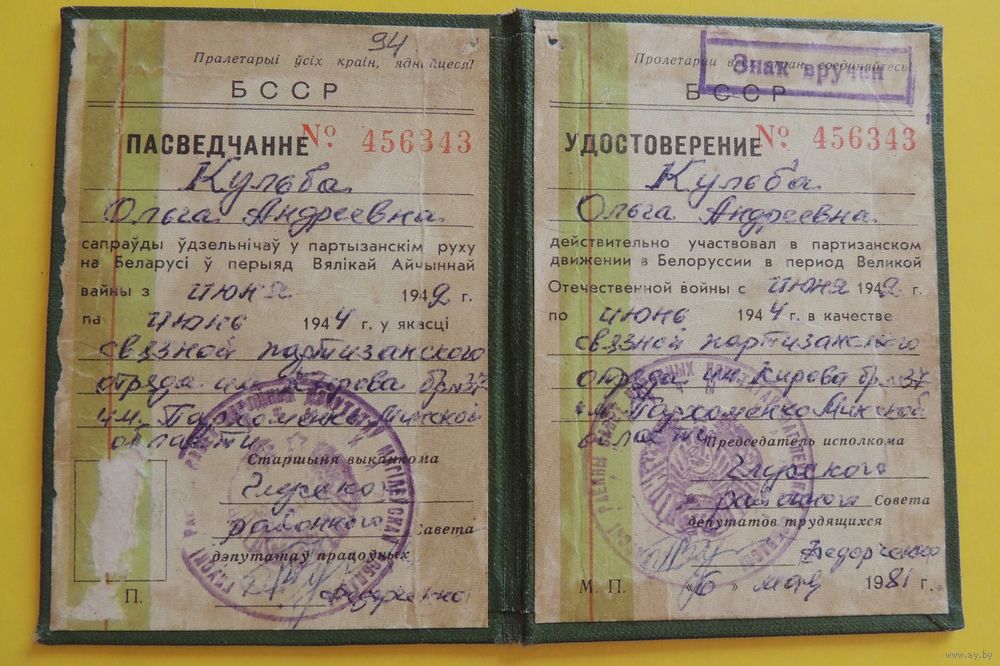 94
Пралетарыі ўсіх краін, яднайцеся!
БССР
ПАСВЕДЧАННЕ № 456343
Кульба
Ольга Андреевна
сапраўды ўдзельнічаў у партызанскім руху
на Беларусі ў перыяд Вялікай Айчыннай
вайны з июня 1942 г.
па июнь 1944 г. у якасці
связной партизанского
отряда им. Кирова бр. №37
им. Пархоменко Минской
области
Старшыня выканкома
Глусского
районного Савета
дэпутатаў працоўных
Федорченко
П.
Пролетарии всех стран, соединяйтесь!
Знак вручен
БССР
УДОСТОВЕРЕНИЕ № 456343
Кульба
Ольга Андреевна
действительно участвовал в партизанском
движении в Белоруссии в период Великой
Отечественной войны с июня 1942 г.
по июнь 1944 г. в качестве
связной партизанского
отряда им. Кирова бр. №37
им. Пархоменко Минской
области
Председатель исполкома
Глусского
районного Совета
депутатов трудящихся
Федорченко
М. П. «6» мая 1981 г.
www.ay.by